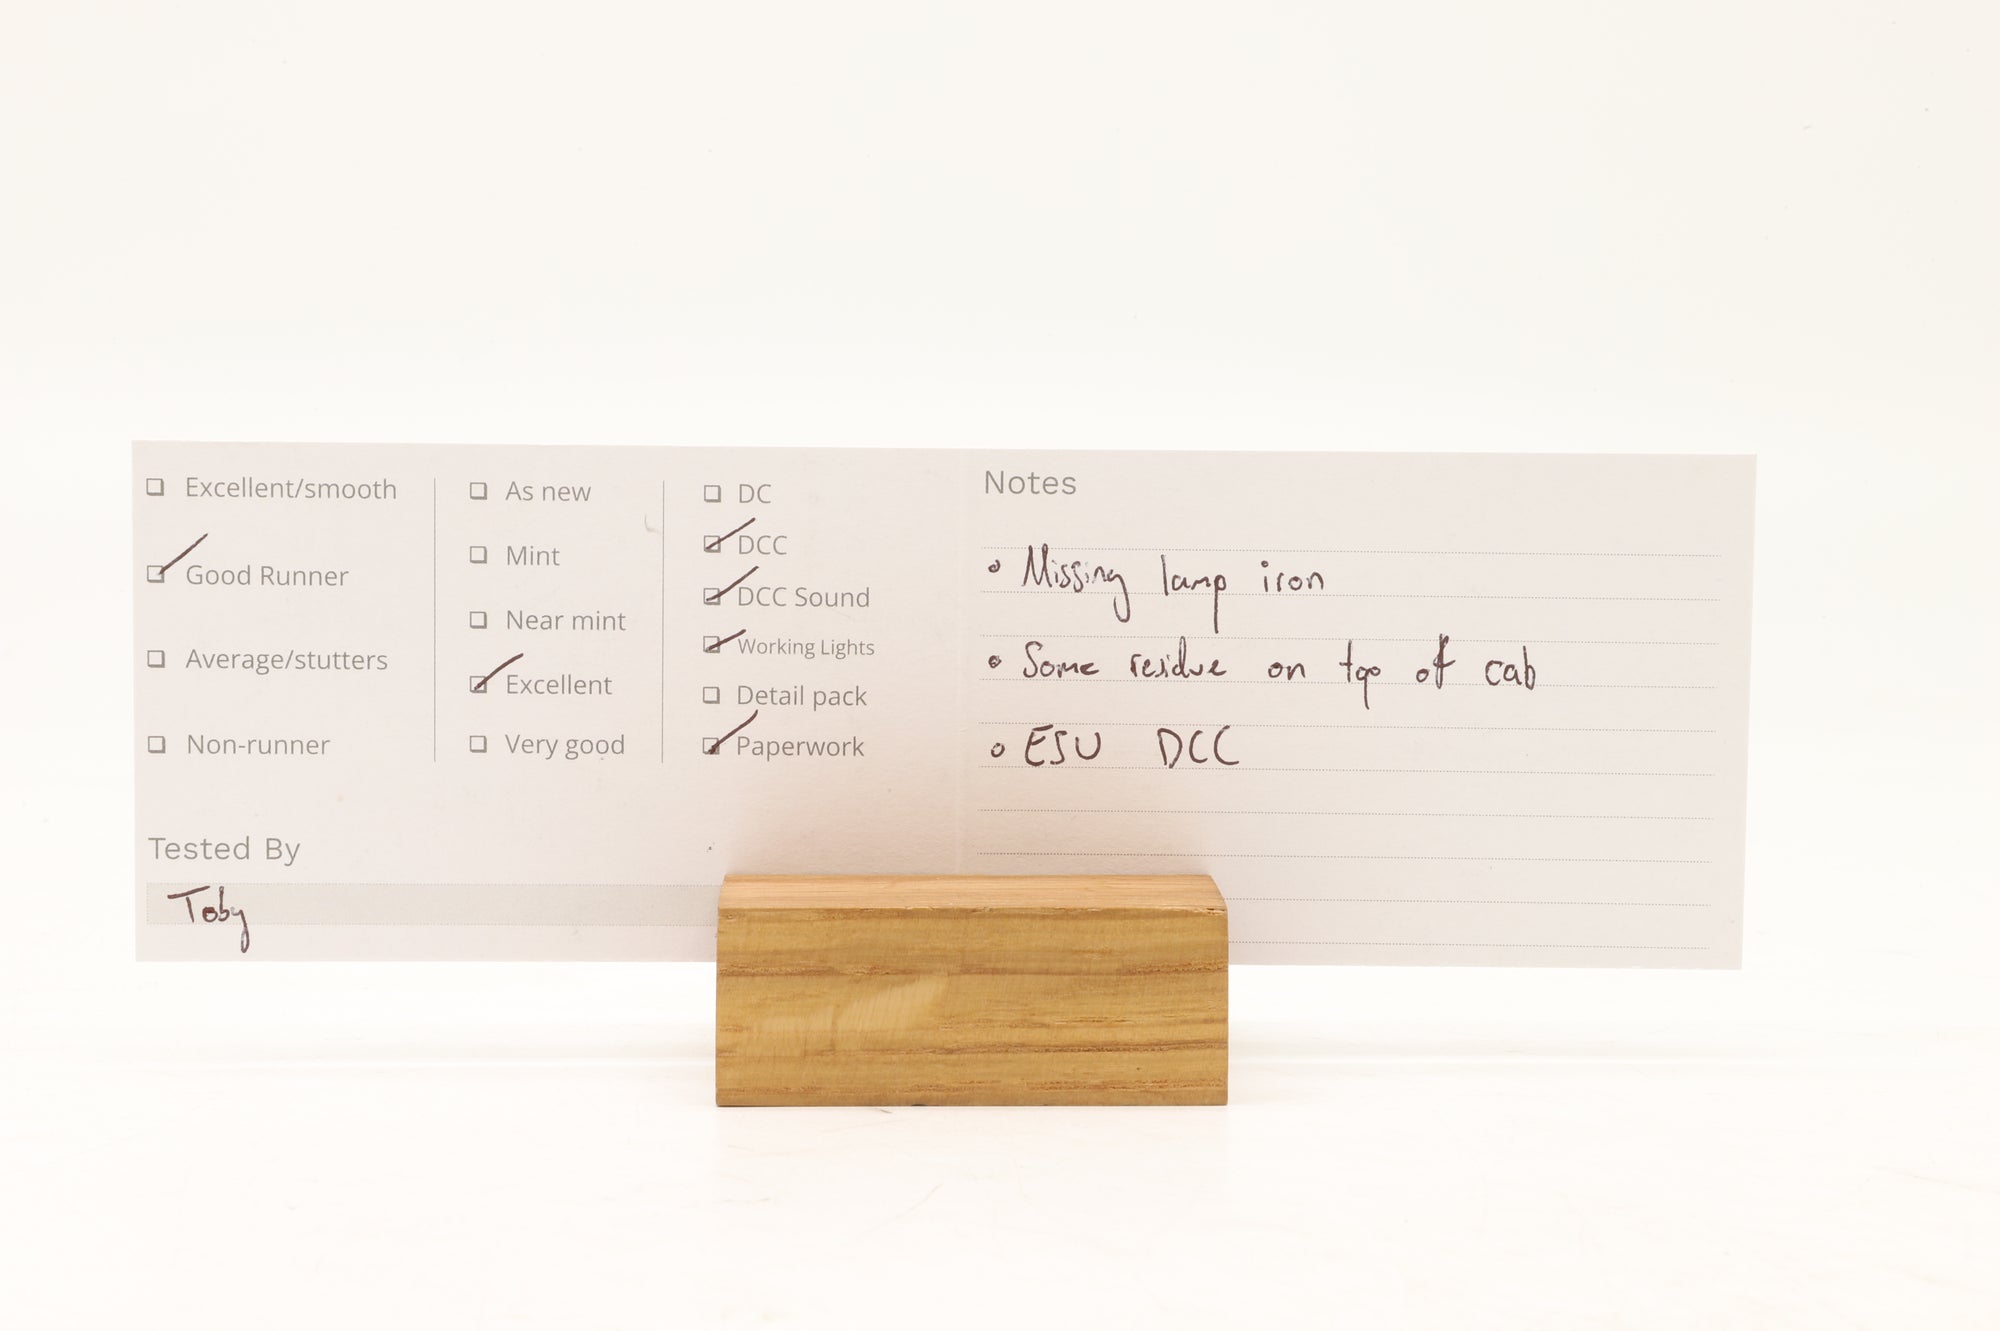 Excellent/smooth
Good Runner
Average/stutters
Non-runner
As new
Mint
Near mint
Excellent
Very good
DC
DCC
DCC Sound
Working Lights
Detail pack
Paperwork
Tested By
Toby
Notes
• Missing lamp iron
• Some residue on top of cab
• ESU DCC